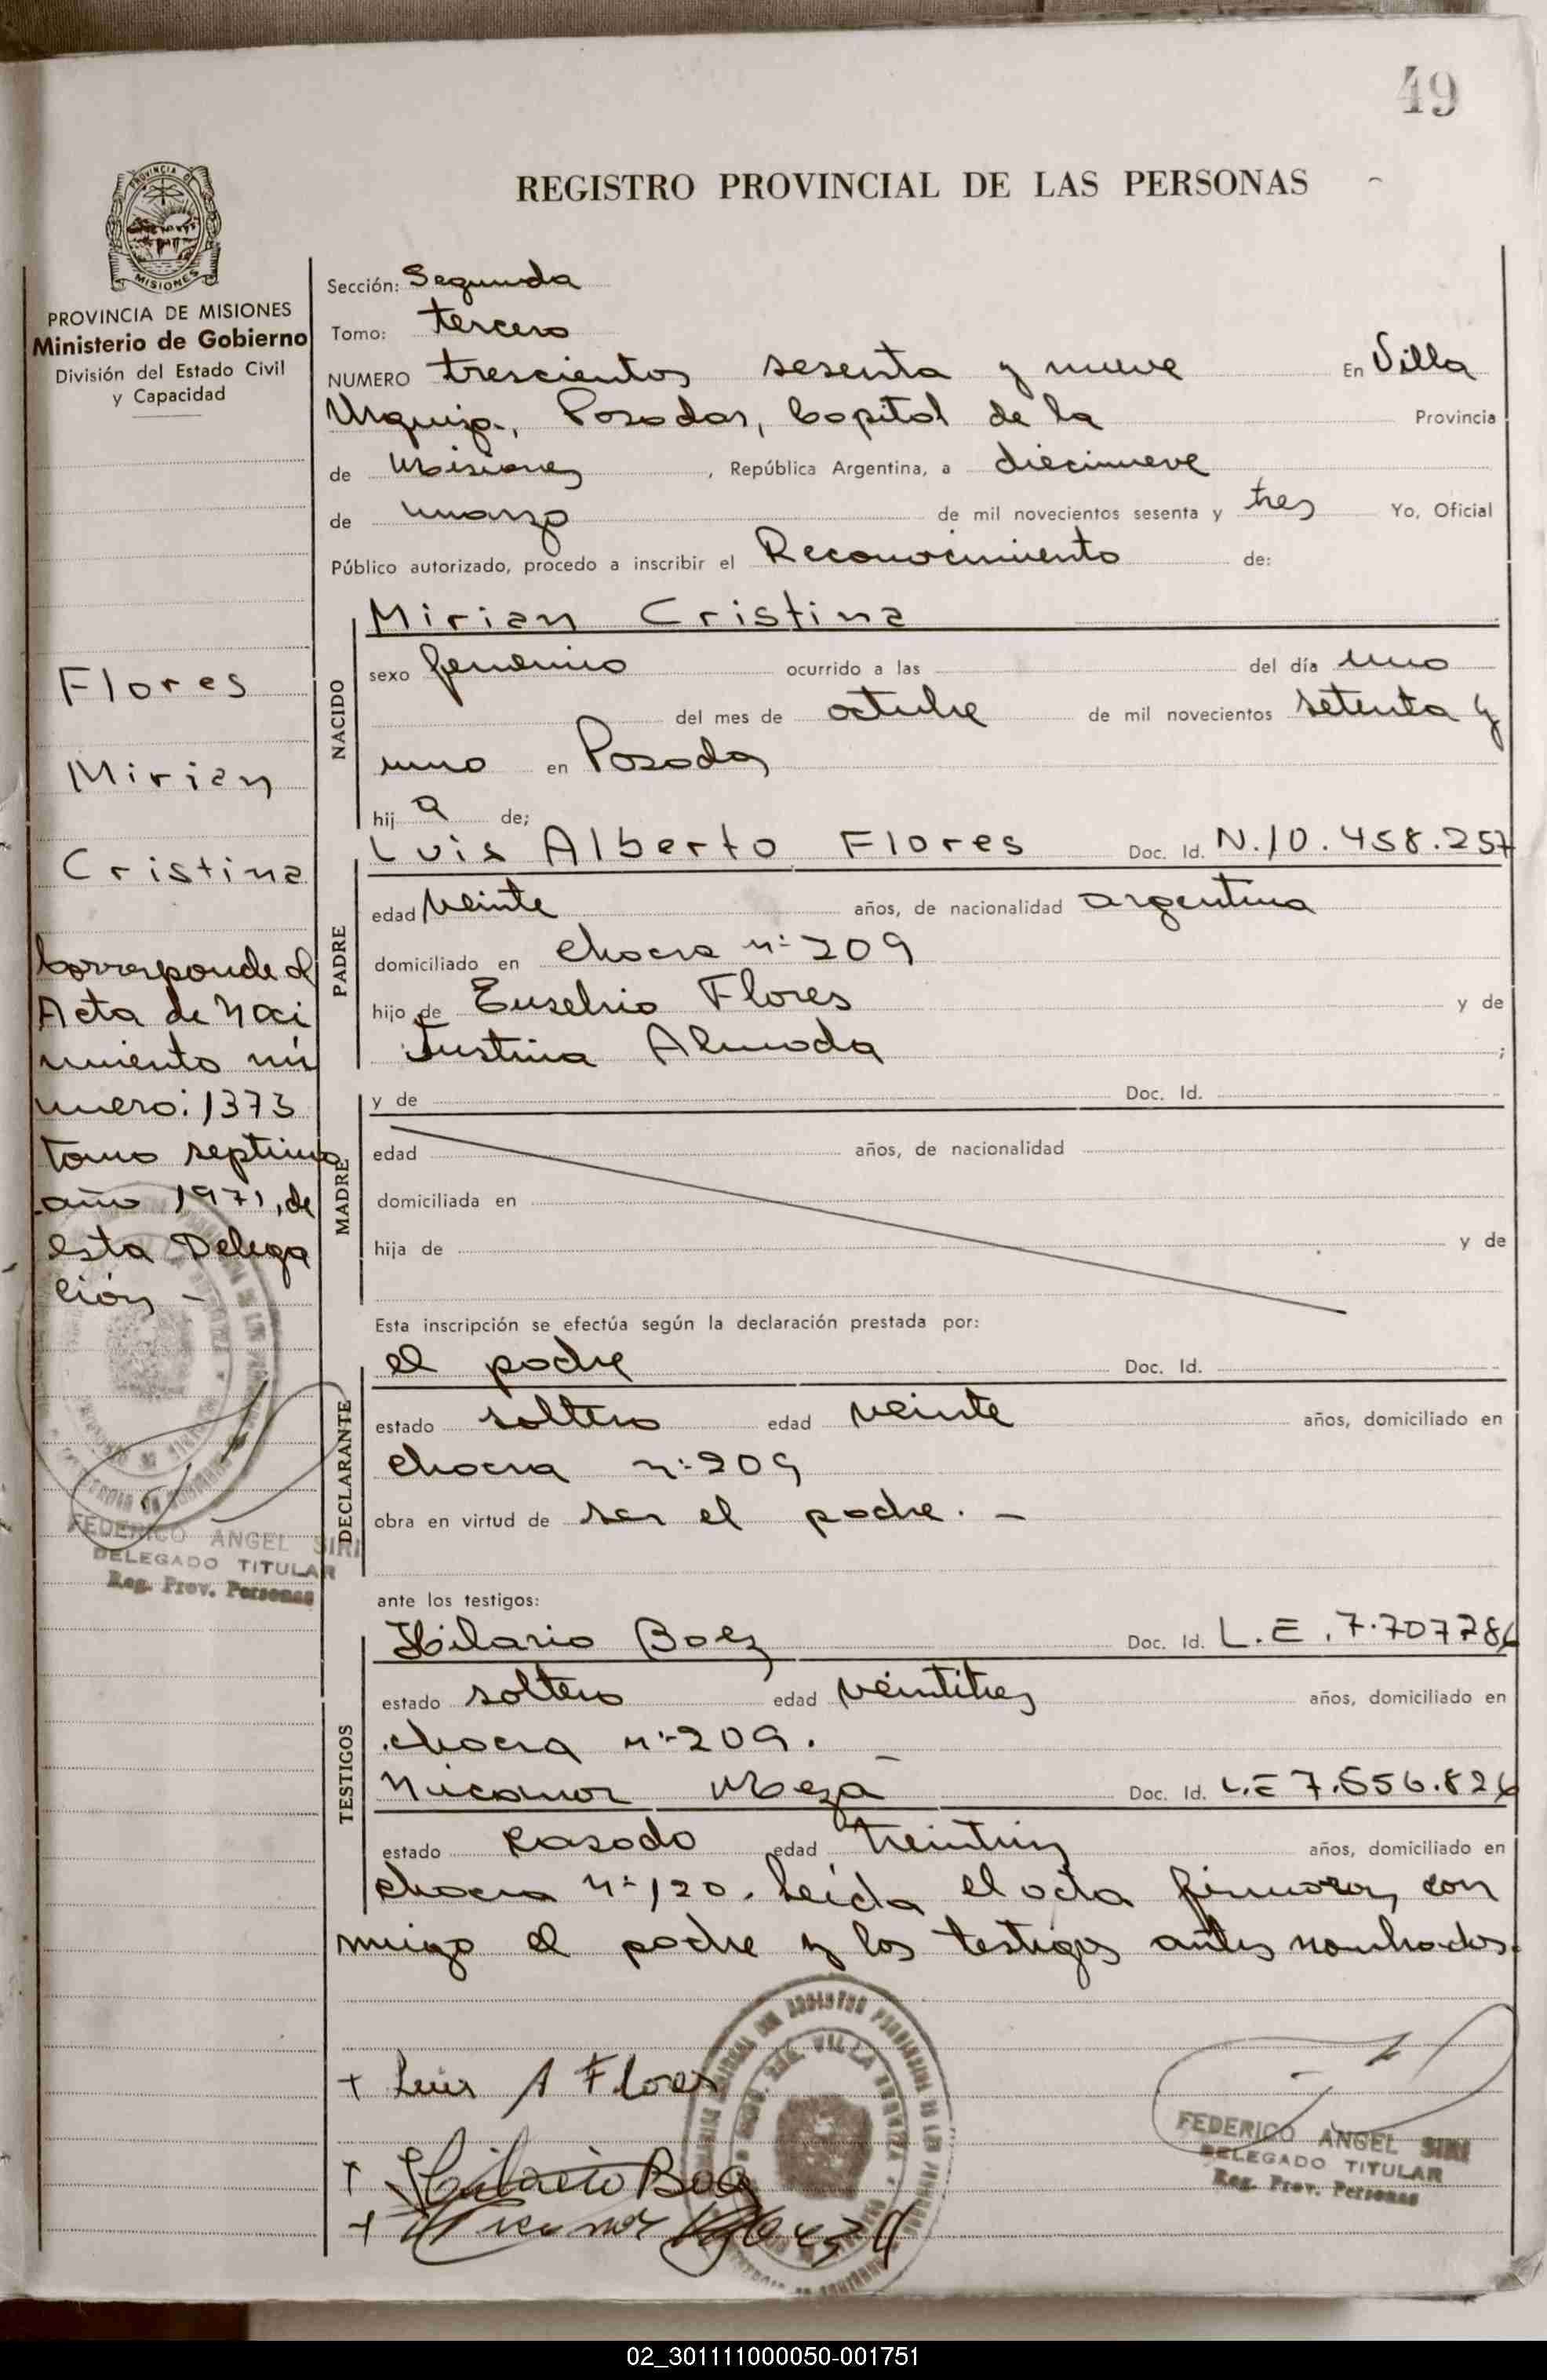 49
REGISTRO PROVINCIAL DE LAS PERSONAS
PROVINCIA DE MISIONES
Ministerio de Gobierno
División del Estado Civil
y Capacidad
Flores
Mirian
Cristina
Corresponde al
Acta de Naci
miento nú
mero: 1373
tomo septimo
año 1971, de
esta Delega
ción -
FEDERICO ANGEL SIRI
DELEGADO TITULAR
Reg. Prov. Personas
Sección: Segunda
Tomo: tercero
NUMERO trescientos sesenta y nueve En Villa
Urquiza, Posadas, Capital de la Provincia
de Misiones, República Argentina, a diecinueve
de marzo de mil novecientos sesenta y tres Yo, Oficial
Público autorizado, procedo a inscribir el Reconocimiento de:
NACIDO
Mirian Cristina
sexo femenino ocurrido a las del día uno
del mes de octubre de mil novecientos setenta y
uno en Posadas
hij a de;
PADRE
Luis Alberto Flores Doc. Id. N.10.458.257
edad veinte años, de nacionalidad argentina
domiciliado en chacra nº 209
hijo de Eusebio Flores y de
Justina Almada ;
MADRE
y de Doc. Id.
edad años, de nacionalidad
domiciliada en
hija de y de
Esta inscripción se efectúa según la declaración prestada por:
DECLARANTE
el padre Doc. Id.
estado soltero edad veinte años, domiciliado en
chacra nº 209
obra en virtud de ser el padre. -
ante los testigos:
TESTIGOS
Hilario Baez Doc. Id. L.E. 7.707786
estado soltero edad veintitres años, domiciliado en
chacra nº 209. -
Nicanor Meza Doc. Id. L.E 7.556.826
estado casado edad años, domiciliado en
chacra nº 120. Leída el acta firmaron con
migo el padre y los testigos antes nombrados.
+ Luis A Flores
+ Hilario Baez
+ Nicanor
FEDERICO ANGEL SIRI
DELEGADO TITULAR
Reg. Prov. Personas
02_301111000050-001751